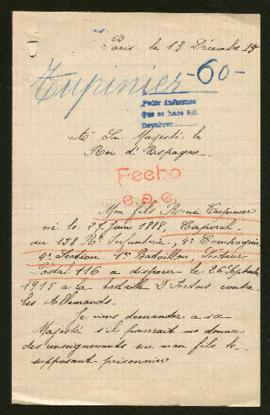 Paris le 13 Décembre 15
Tupinier -60-
Pedir
que se hace así
Devolver
A Sa Majesté le
Roi d'Espagne
Fecho
Mon fils René Tupinier
né le 25 juin 1888, Caporal
au 158 Rt Infanterie, 1e Compagnie
4e Section 1er Bataillon, Secteur
Postal 116 a disparu le 26 Septembre
1915 a la bataille D'Artois contre
les Allemands.
Je viens demander a sa
Majesté s'il pourrait me donner
des renseignements sur mon fils le
supposant prisonnier